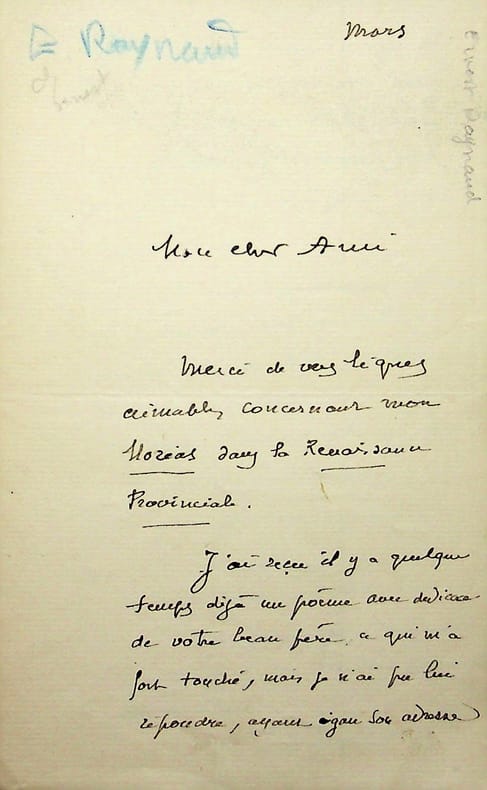 E Raynaud
Ernest
Mars
Ernest Raynaud
Mon cher Ami
Merci de vos lignes
aimables concernant mon
Moréas dans la Renaissance
Provinciale.
J'ai reçu il y a quelque
temps déjà un poème avec dédicace
de votre beau père, ce qui m'a
fort touché, mais je n'ai pu lui
répondre, ayant égaré son adresse